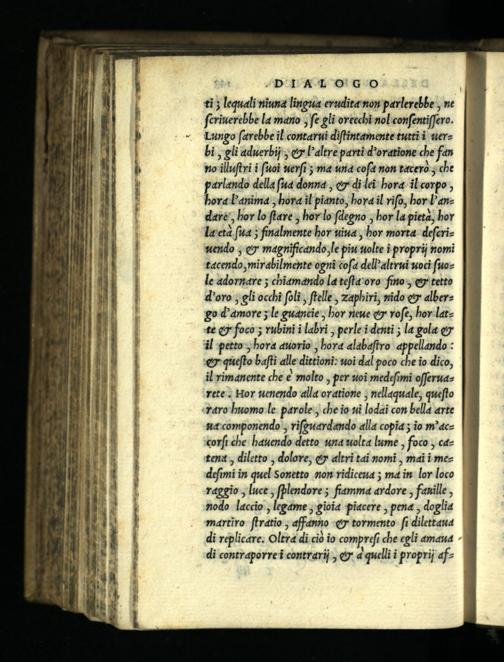 DIALOGO
ti; lequali niuna lingua erudita non parlerebbe, ne
scriuerebbe la mano, se gli orecchi nol consentissero.
Lungo sarebbe il contarui distintamente tutti i uer-
bi, gli aduerbij, & l'altre parti d'oratione che fan
no illustri i suoi uersi; ma una cosa non tacerò, che
parlando della sua donna, & di lei hora il corpo,
hora l'anima, hora il pianto, hor il riso, hor l'an-
dare, hor lo stare, hor lo sdegno, hor la pietà, hor
la età sua; finalmente hor uiua, hor morta descri-
uendo, & magnificando, le piu uolte i proprij nomi
tacendo, mirabilmente ogni cosa dell'altrui uoci suo-
le adornare; chiamando la testa oro fino, & tetto
d'oro, gli occhi soli, stelle, zaphiri, nido & alber-
go d'amore; le guancie, hor neue & rose, hor lat-
te & foco; rubini i labri, perle i denti; la gola &
il petto, hora auorio, hora alabastro appellando:
& questo basti alle dittioni: uoi dal poco che io dico,
il rimanente che è molto, per uoi medesimi osserua-
rete. Hor uenendo alla oratione, nellaquale, questo
raro huomo le parole, che io ui lodai con bella arte
ua componendo, risguardando alla copia; io m'ac-
corsi che hauendo detto una uolta lume, foco, ca-
tena, diletto, dolore, & altri tai nomi, mai i me-
desimi in quel Sonetto non ridiceua; ma in lor loco
raggio, luce, splendore; fiamma ardore, fauille,
nodo laccio, legame, gioia piacere, pena, doglia
martiro stratio, affanno & tormento si dilettaua
di replicare. Oltra di ciò io compresi che egli amaua
di contraporre i contrarij, & à quelli i proprij af-